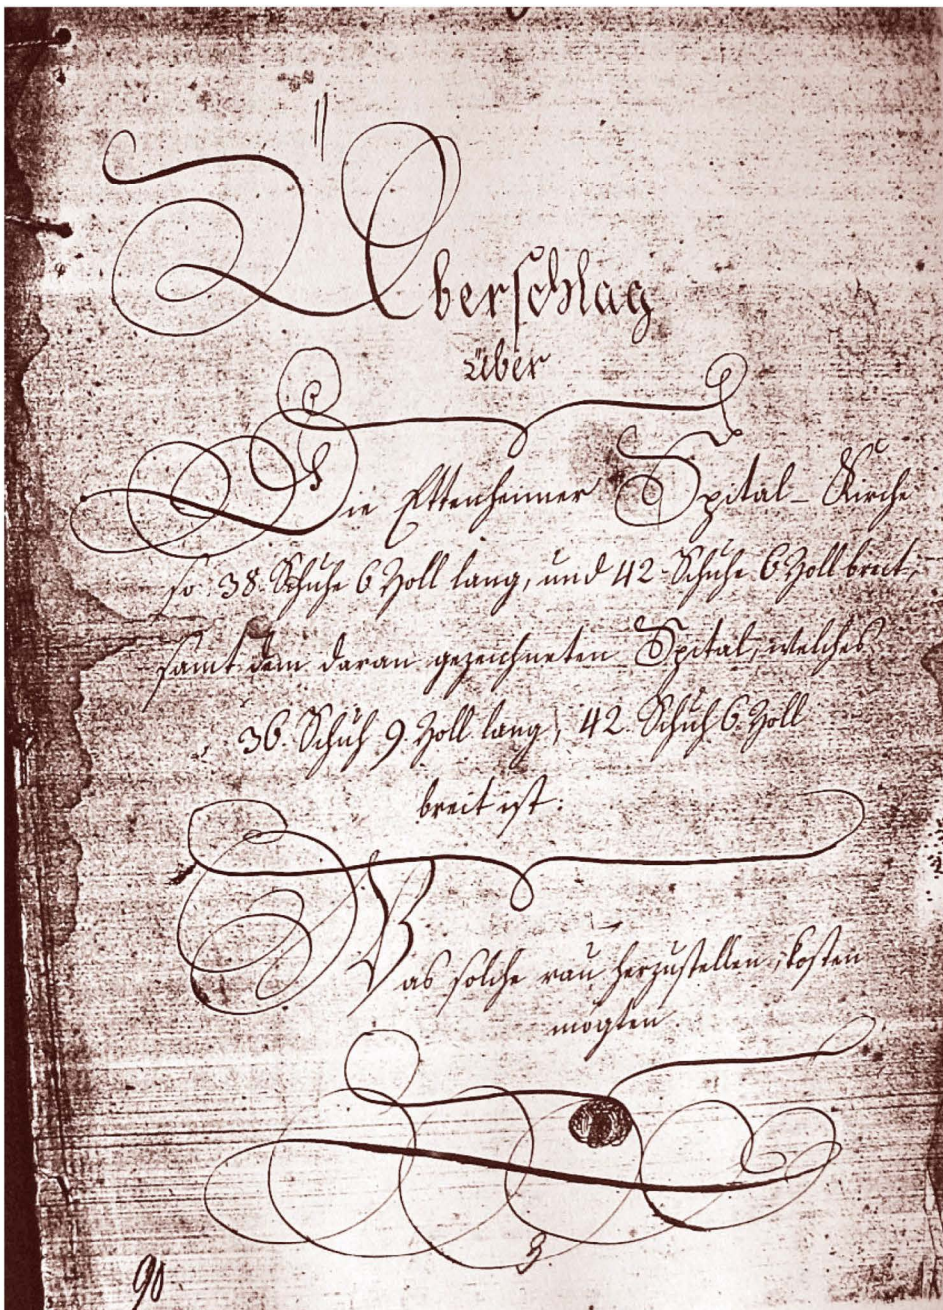 Überschlag
über
Die Ettenheimer Spital-Kirche
so 38. Schuhe 6 Zoll lang, und 42. Schuhe 6 Zoll breit,
samt dem daran gezeichneten Spital, welches
36. Schuh 9. Zoll lang, 42. Schuh 6. Zoll
breit ist.
Was solche rau herzustellen, kosten
mögten.
3
90